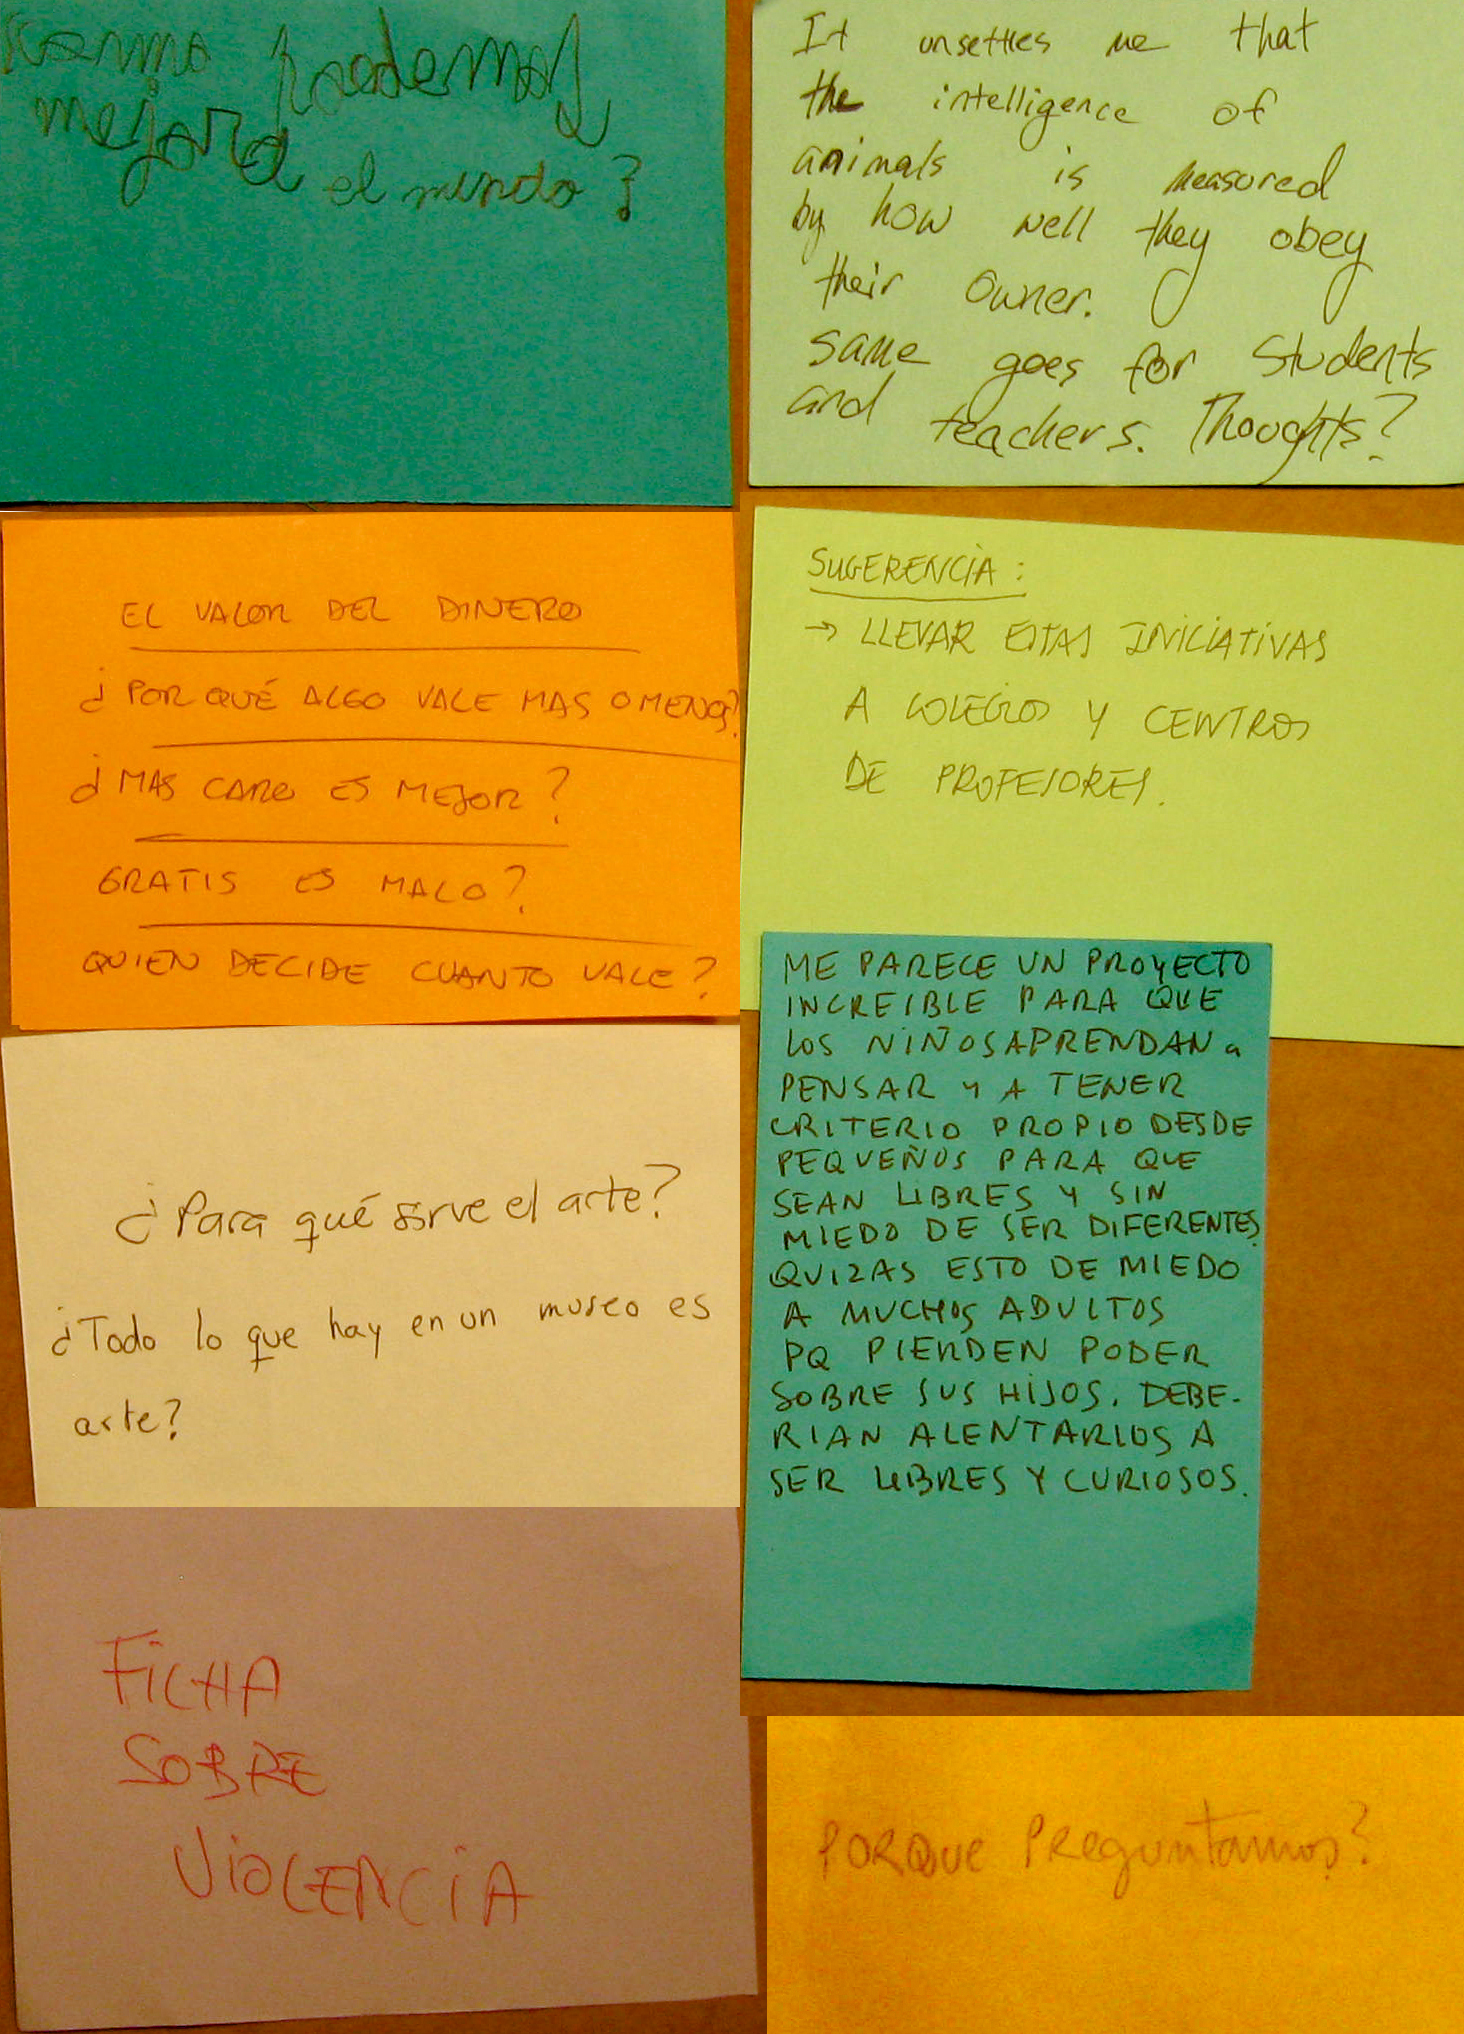 Kommo podemos
mejora el mundo?
It unsettles me that
the intelligence of
animals is measured
by how well they obey
their owner.
same goes for students
and teachers. Thoughts?
EL VALOR DEL DINERO
¿POR QUÉ ALGO VALE MAS O MENOS?
¿MAS CARO ES MEJOR?
GRATIS ES MALO?
QUIEN DECIDE CUANTO VALE?
SUGERENCIA:
→ LLEVAR ESTAS INICIATIVAS
A COLEGIOS Y CENTROS
DE PROFESORES.
¿Para qué sirve el arte?
¿Todo lo que hay en un museo es
arte?
ME PARECE UN PROYECTO
INCREIBLE PARA QUE
LOS NIÑOS APRENDAN a
PENSAR Y A TENER
CRITERIO PROPIO DESDE
PEQUEÑOS PARA QUE
SEAN LIBRES Y SIN
MIEDO DE SER DIFERENTES.
QUIZAS ESTO DE MIEDO
A MUCHOS ADULTOS
PQ PIERDEN PODER
SOBRE SUS HIJOS. DEBE-
RIAN ALENTARLOS A
SER LIBRES Y CURIOSOS.
FICHA
SOBRE
VIOLENCIA
PORQUE PREguntamos?